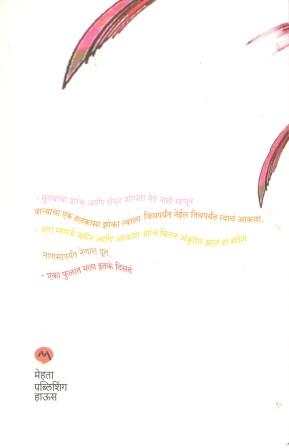 - सुगंधाचा प्रारंभ आणि शेवट शोधता येत नाही म्हणून
वाऱ्याचा एक हलकासा झोका त्याला जिथपर्यंत नेईल तिथपर्यंत त्याचं आकाश.
- वारा म्हणजे जमीन आणि आकाश यांचं मिलन अंकुरीत झालं हा संदेश
माणसांपर्यंत नेणारा दूत.
- एका फुलात मला इतकं दिसतं
मेहता
पब्लिशिंग
हाऊस